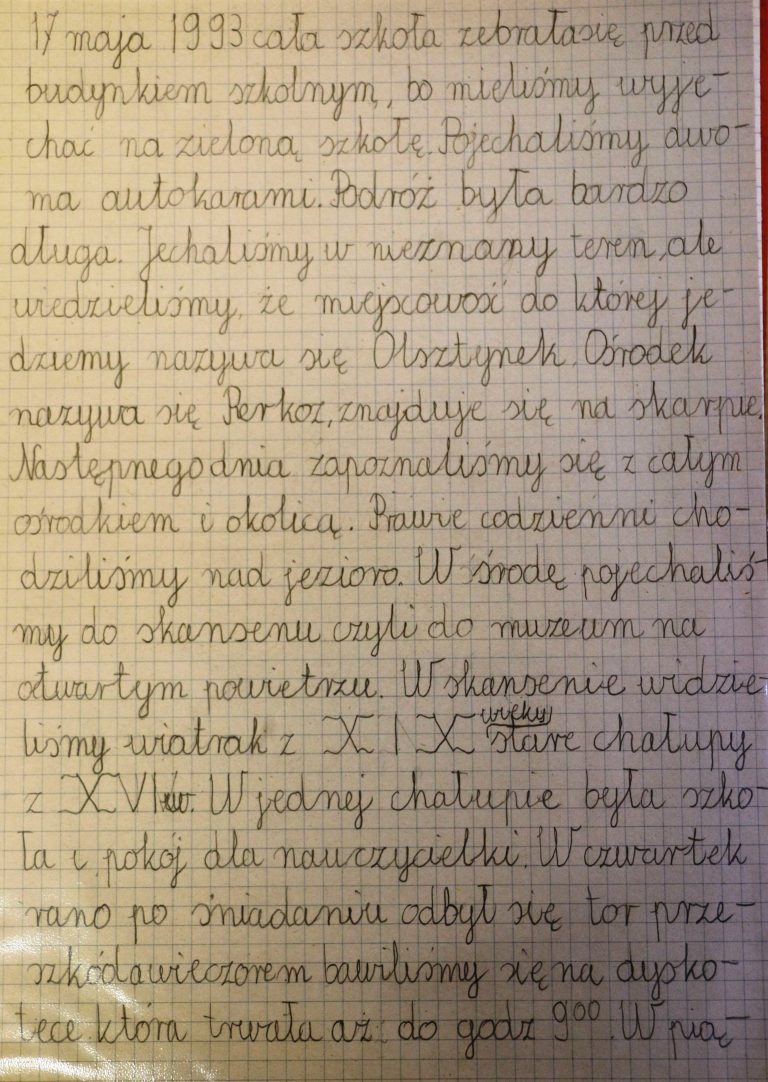 17 maja 1993 cała szkoła zebrała się przed
budynkiem szkolnym, bo mieliśmy wyje-
chać na zieloną szkołę. Pojechaliśmy dwo-
ma autokarami. Podróż była bardzo
długa. Jechaliśmy w nieznany teren, ale
wiedzieliśmy, że miejscowość do której je-
dziemy nazywa się Olsztynek. Ośrodek
nazywa się Perkoz, znajduje się na skarpie.
Następnego dnia zapoznaliśmy się z całym
ośrodkiem i okolicą. Prawie codzienni cho-
dziliśmy nad jezioro. W środę pojechaliś-
my do skansenu czyli do muzeum na
otwartym powietrzu. W skansenie widzie-
liśmy wiatrak z XIX wieku stare chałupy
z XVI w. W jednej chałupie była szko-
ła i pokój dla nauczycielki. W czwartek
rano po śniadaniu odbył się tor prze-
szkód a wieczorem bawiliśmy się na dysko-
tece która trwała aż do godz 9⁰⁰. W pią-